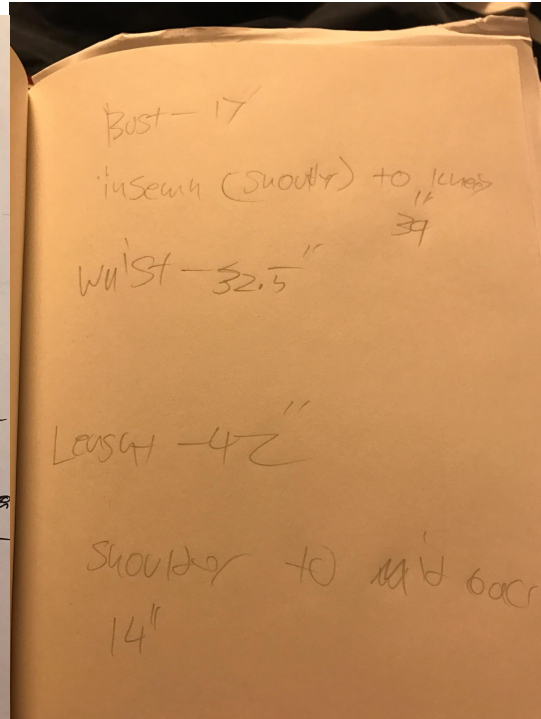 Bust - 17"
inseam (shouldr) to knees
39"
Waist - 32.5"
Length - 42"
Shoulder to mid bac
14"